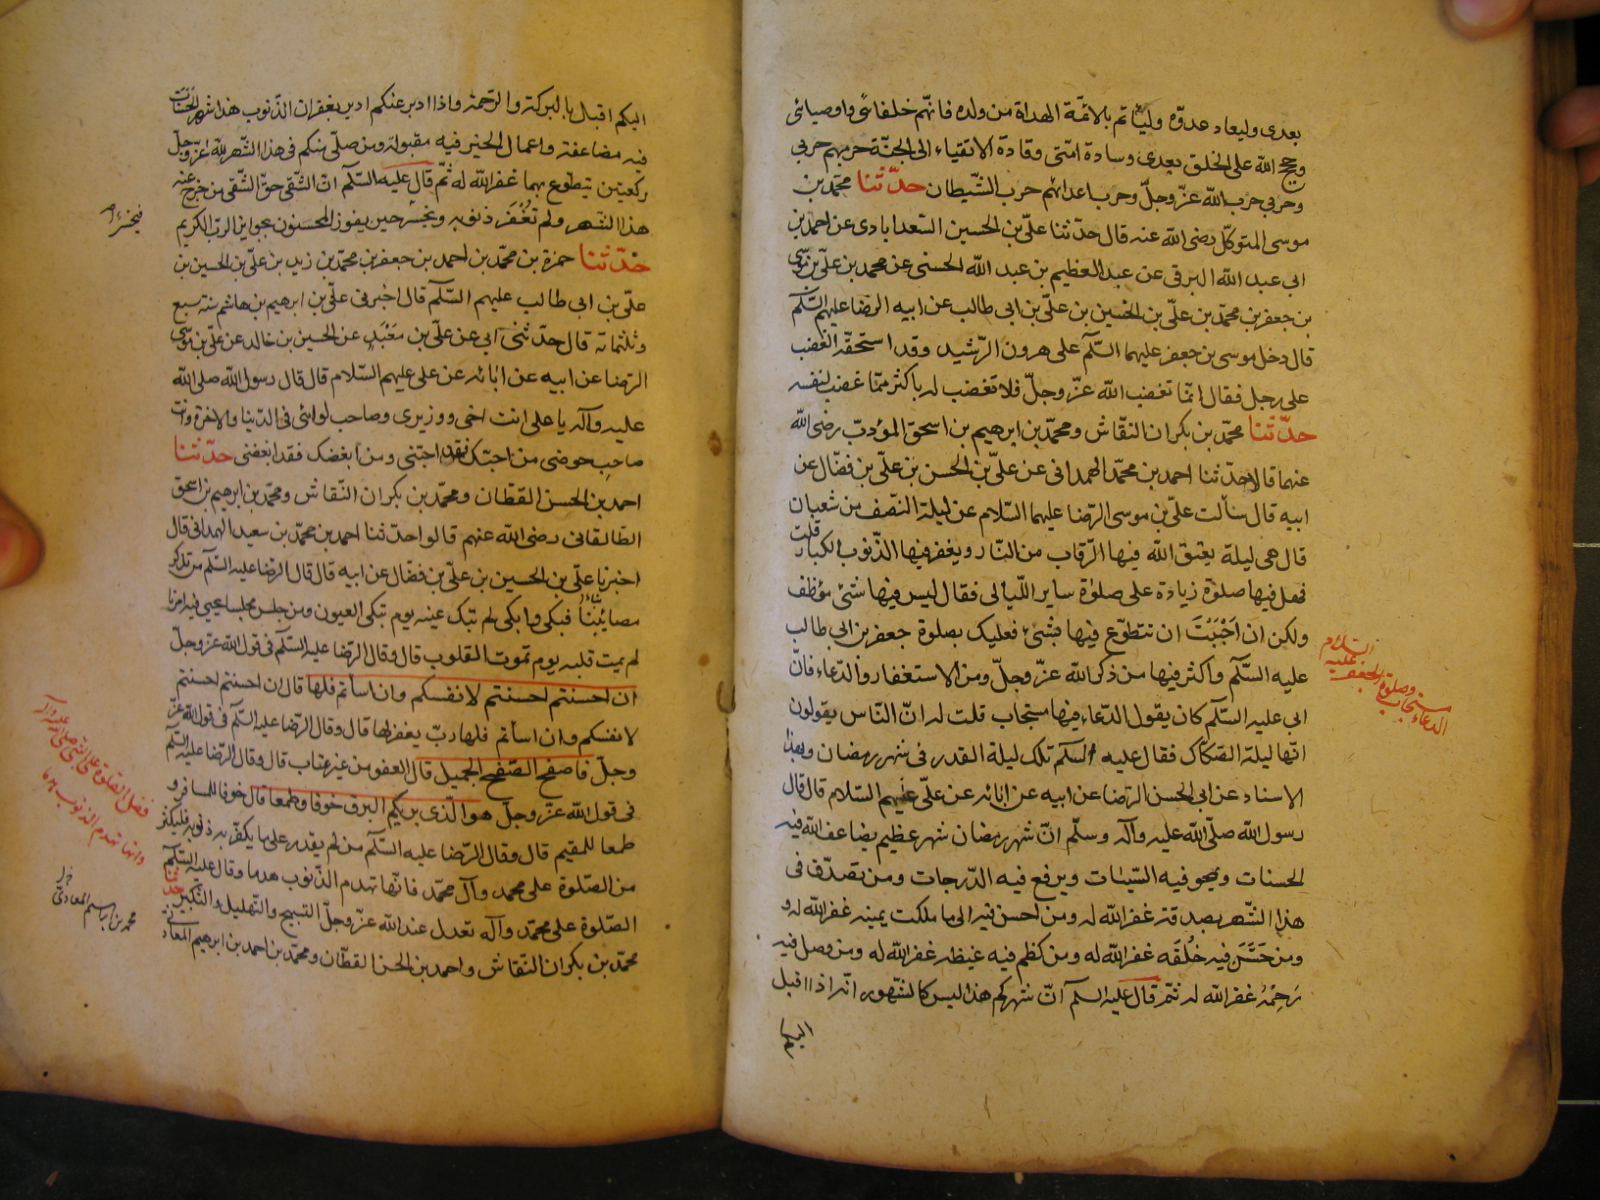 بعدى وليعاد عدوّه وليأتم بالائمّة الهداة من ولده فانهّم خلفائى واوصيائى
وحجج الله على الخلق بعدى وسادة امّتى وقادة الاتقياء الى الجنّة حزبهم حزبى
وحزبى حزب الله عزّ وجلّ وحزب اعدائهم حزب الشّيطان حدّثنا محمّد بن
موسى المتوكّل رضى الله عنه قال حدّثنا علىّ بن الحسين السّعدابادى عن احمد بن
ابى عبد الله البرقى عن عبد العظيم بن عبد الله الحسنى عن محمد بن علىّ بن موسى
بن جعفر بن محمّد بن علىّ بن الحسين بن علىّ بن ابى طالب عن ابيه الرضا عليهم السّلم
قال دخل موسى بن جعفر عليهما السّلم على هرون الرّشيد وقد استحقّه الغضب
على رجل فقال انمّا تغضب الله عزّ وجلّ فلا تغضب له باكثر ممّا غضب لنفسه
حدّثنا محمّد بن بكران النقّاش ومحمّد بن ابرهيم بن اسحق المؤدبّ رضى الله
عنهما قالا حدّثنا احمد بن محمّد الهمدانى عن علىّ بن الحسن بن علىّ بن فضّال عن
ابيه قال سألت علىّ بن موسى الرّضا عليهما السّلام عن ليلة النّصف من شعبان
قال هى ليلة يعتق الله فيها الرّقاب من النّار ويغفر فيها الذّنوب الكبار قلت
فهل فيها صلوة زيادة على صلوة ساير اللّيالى فقال ليس فيها شئ مؤظف
ولكن ان اَحْبَبْتَ ان تتطوّع فيها بشئ فعليك بصلوة جعفر بن ابى طالب
عليه السّلم واكثر فيها من ذكر الله عزّ وجلّ ومن الاستغفار والدّعاء فانّ
ابى عليه السّلم كان يقول الدّعاء فيها مستجاب قلت له انّ النّاس يقولون
انهّا ليلة الصّكاك فقال عليه السلم تلك ليلة القدر فى شهر رمضان وبهذا
الاسناد عن ابى الحسن الرّضا عن ابيه عن ابائه عن علىّ عليهم السّلام قال قال
رسول الله صلّى الله عليه وآله وسلّم انّ شهر رمضان شهر عظيم يضاعف الله فيه
الحسنات ويمحو فيه السّيئات ويرفع فيه الدّرجات ومن تصدّق فى
هذا الشّهر بصدقة غفر الله له ومن احسن فيه الى ما ملكت يمينه غفر الله له و
ومن حَسَّنَ فيه خُلقَه غفر الله له ومن كظم فيه غيظه غفر الله له ومن وصل فيه
رَحِمَهُ غفر الله له ثمّ قال عليه السلم انّ شهركم هذا ليس كالشّهور انّه اذا اقبل
السّلام
عليه
وصلوة الجعفر
الدعاء مستجاب
اليكم اقبل بالبركة والرّحمة واذا ادبر عنكم ادبر بغفران الذّنوب هذا شهر الحسَنات
فيه مضاعفة واعمال الخير فيه مقبولة ومن صلّى منكم فى هذا الشّهر لله عزّ وجلّ
ركعتين يتطوّع بهما غفر الله له ثمّ قال عليه السّلم انّ الشّقى حقّ الشّقى من خرج عنه
هذا الشّهر ولم تُغْفَر ذنوبه ويخسر حين يفوز المحسنون بجوايز الربّ الكريم
حدّثنا حمزة بن محمّد بن احمد بن جعفر بن محمّد بن زيد بن علىّ بن الحسين بن
علىّ بن ابى طالب عليهم السّلم قال اخبرنى علىّ بن ابرهيم بن هاشم سنة سبع
وثلثمائه قال حدّثنى ابى عن علىّ بن مَعْبَدٍ عن الحسين بن خالد عن علىّ بن موسى
الرّضا عن ابيه عن ابائه عن على عليهم السّلام قال قال رسول الله صلى الله
عليه وآله يا على انت اخى ووزيرى وصاحب لوائى فى الدّنيا والاخرة وانت
صاحب حوضى من احبّك فقد احبّنى ومن ابغضك فقد ابغضنى حدّثنا
احمد بن الحسن القطّان ومحمّد بن بكران النّقاش ومحمّد بن ابرهيم بن اسحق
الطالقانى رضى الله عنهم قالوا حدّثنا احمد بن محمّد بن سعيد الهمدانى قال
اخبرنا علىّ بن الحسين بن علىّ بن فضّال عن ابيه قال قال الرضا عليه السّلم من تذكر
مصائبنَا فبكى وابكى لم تبك عينه يوم تبكى العيون ومن جلس مجلسا يحيى فيه امرنا
لم يمت قلبه يوم تموت القلوب قال وقال الرّضا عليه السّلم فى قول الله عزّ وجلّ
ان احسنتم احسنتم لانفسكم وان اسأتم فلها قال ان احسنتم احسنتم
لانفسكم وان اسأتم فلها ربّ يغفر لها قال وقال الرّضا عليه السّلم فى قول الله عزّ
وجلّ فاصفح الصّفح الجميل قال العفو من غير عتاب قال وقال الرّضا عليه السّلم
فى قول الله عزّ وجلّ هو الّذى يريكم البرق خوفا وطمعا قال خوفا للمسافر و
طمعا للمقيم قال وقال الرّضا عليه السّلم من لم يقدر على ما يكفّر به ذنوبه فليكثر
من الصّلوة على محمد وآل محمّد فانّها تهدم الذّنوب هدما وقال عليه السّلم
الصّلوة على محمّد وآله تعدل عند الله عزّ وجلّ التسبيح والتّهليل والتّكبير حدّثنا
محمّد بن بكران النّقاش واحمد بن الحسن القطّان ومحمّد بن احمد بن ابرهيم المعاذى
فضل الصّلوة على النّبى صلى الله عليه وآله
وانها تهدم الذنوب هدما